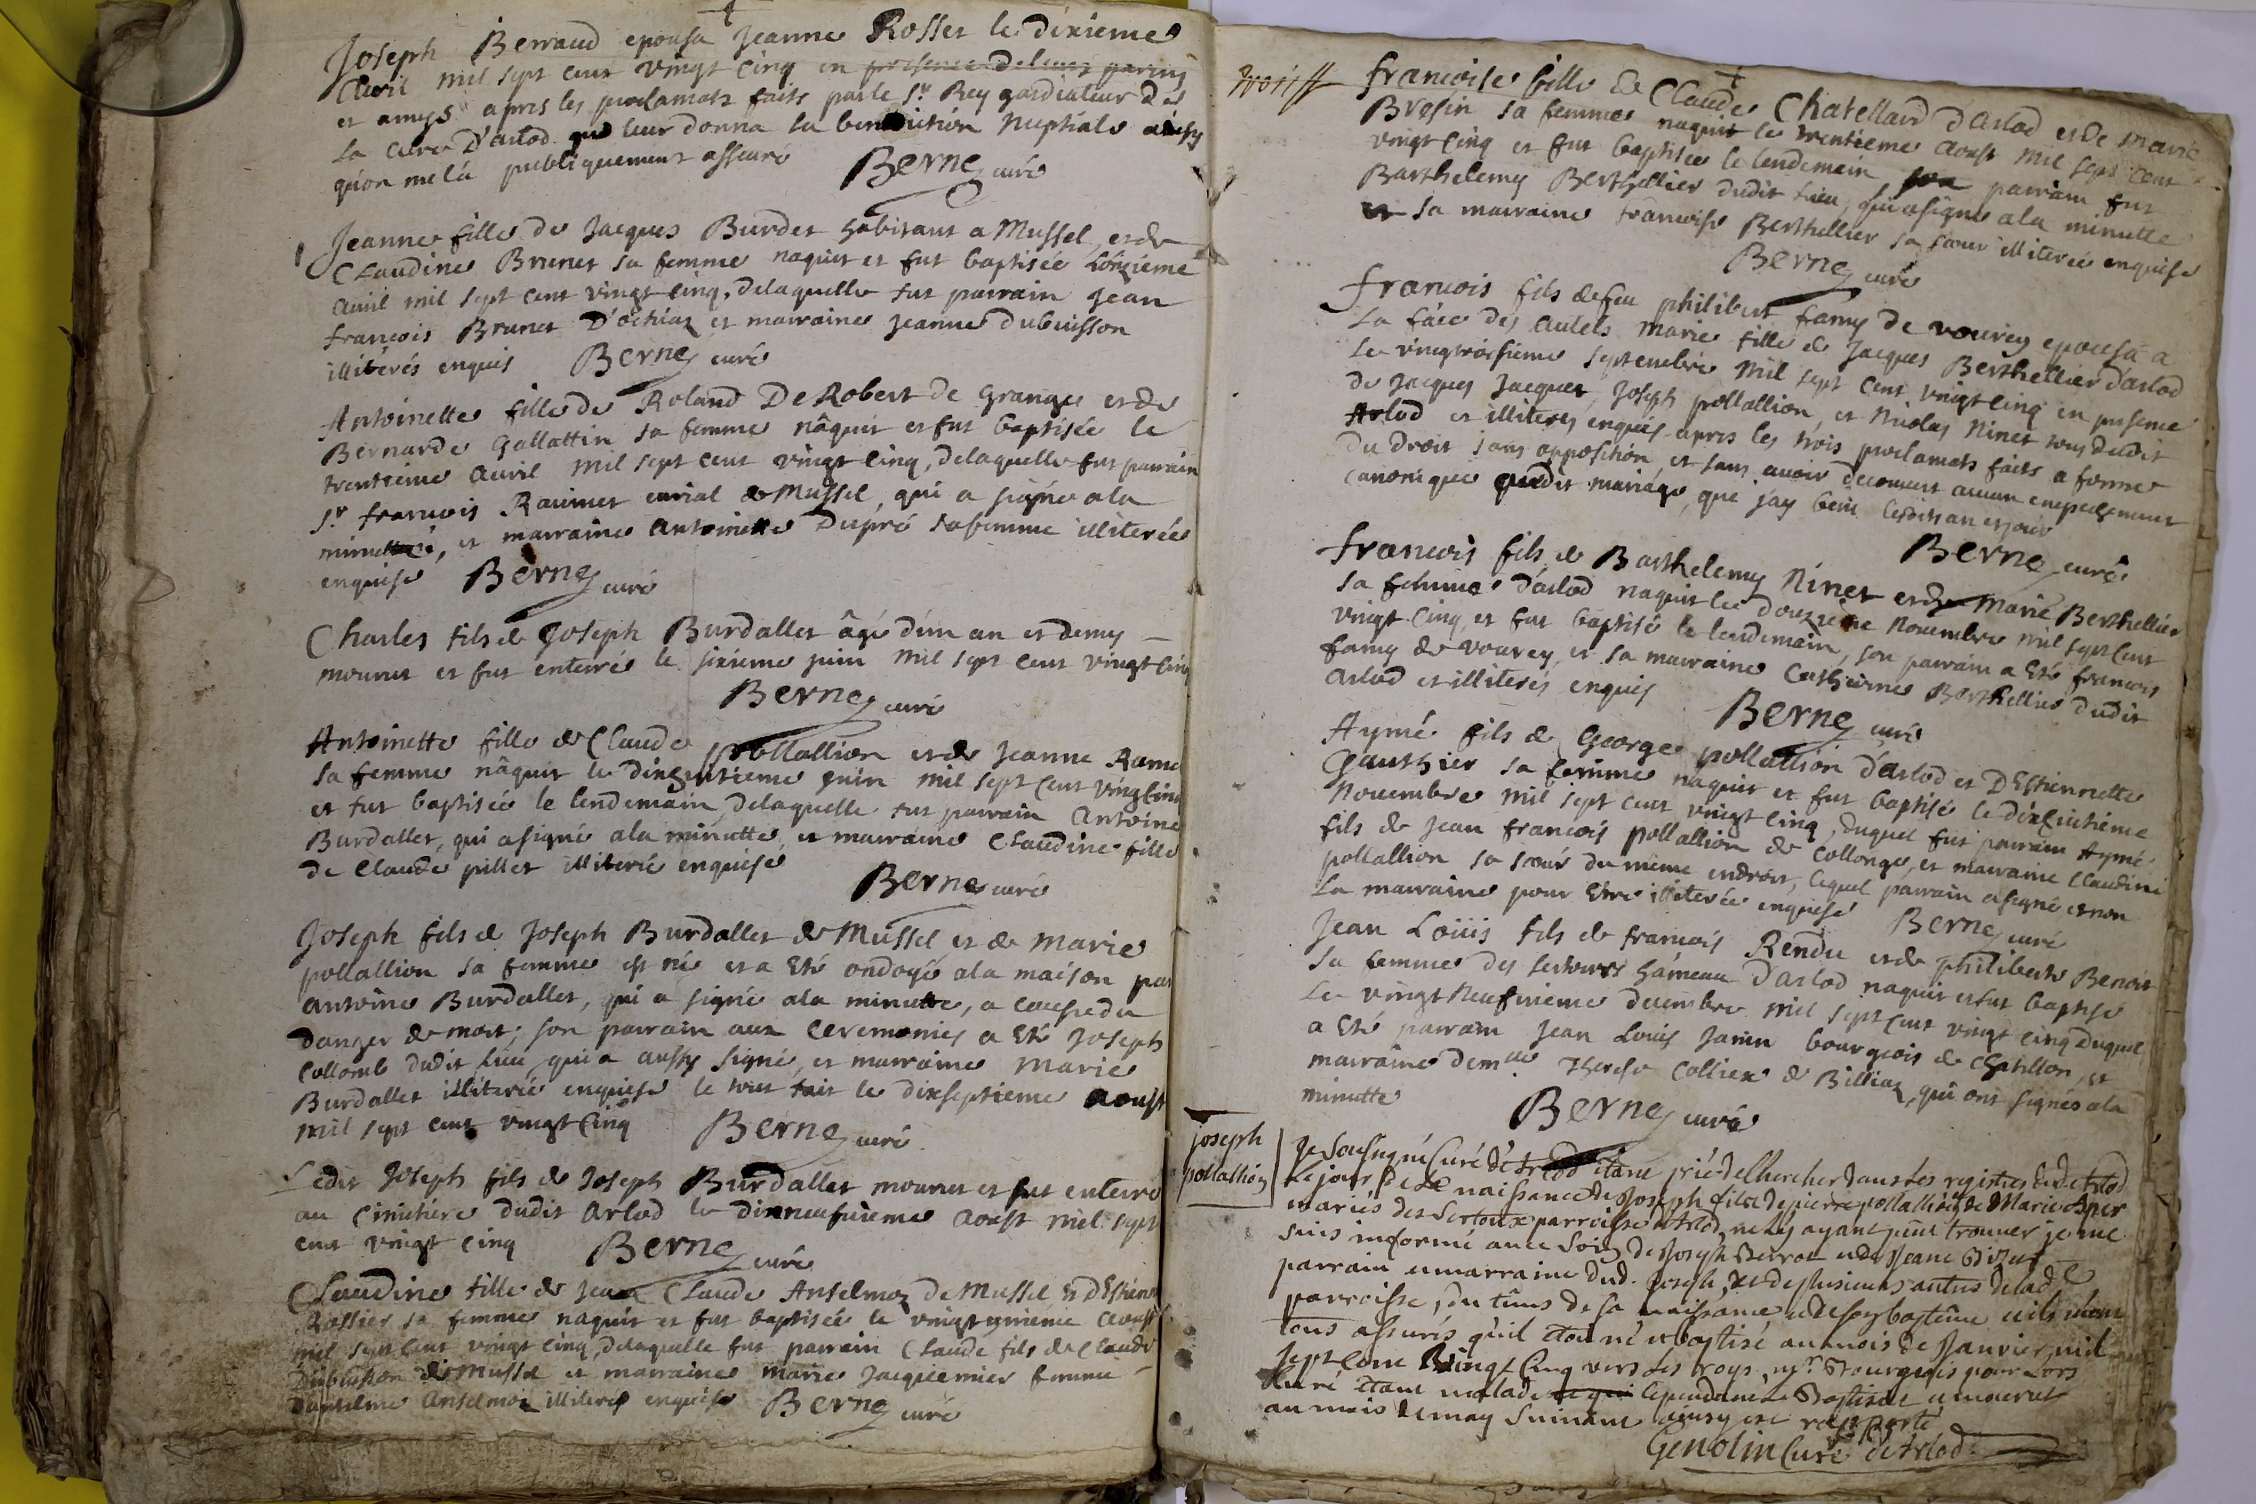 Joseph Berraud epousa Jeanne Rosset le dixieme
Avril mil sept cent vingt cinq en presence de leurs parens
et amys apres les proclamats faits par le Sr. Rey gardiateur de
la cure D'arlod qui leur donna la benediction nuptiale ainsy
qu'on me l'a publiquement asseuré Berne curé
Jeanne fille de Jacques Burdet habitant a Mussel, et de
Claudine Brunet sa femme naquit et fut baptisée l'onzieme
avril mil sept cent vingt cinq, de laquelle fut parrain Jean
francois Brunet D'ochiaz et marraine Jeanne Dubuisson
illiterés enquis Berne curé
Antoinette fille de Roland De Robert de Grange et de
Bernarde Gallattin sa femme nâquit et fut baptisée le
trentieme avril mil sept cent vingt cinq, de laquelle fut parrain
Sr. francois Ravinet curial de Mussel, qui a signé a la
minutte, et marraine Antoinette Dupré sa femme illiterée
enquise Berne curé
Charles fils de Joseph Burdallet âgé d'un an et demy
mourut et fut enterré le sixieme juin mil sept cent vingt cinq
Berne curé
Antoinette fille de Claude pollallion et de Jeanne
sa femme nâquit le dixhuitieme juin mil sept cent vingt cinq
et fut baptisée le lendemain, de laquelle fut parrain Antoine
Burdallet, qui a signé a la minutte, et marraine Claudine fille
de Claude pillet illiterée enquise
Berne curé
Joseph fils de Joseph Burdallet de Mussel et de Marie
pollallion sa femme est né et a été ondoyé a la maison par
antoine Burdallet, qui a signé a la minutte, a cause du
danger de mort, son parrain aux ceremonies a été Joseph
Collomb dudit lieu, qui a aussy signé, et marraine Marie
Burdallet illiterée enquise le tout fait le dixseptieme Aoust
mil sept cent vingt cinq Berne curé
Ledit Joseph fils de Joseph Burdallet mourut et fut enterré
au cimitiere dudit Arlod le dixneufvieme Aoust mil sept
cent vingt cinq Berne curé
Claudine fille de Jean Claude Anselmoz de Mussel et d'Estien
Rossier sa femme naquit et fut baptisée le vingt unieme Aoust
mil sept cent vingt cinq, de laquelle fut parrain Claude fils de Claude
Dubuisson de Mussel et marraine Marie Jacquemier femme
d'anselme Anselmoz illiterés enquis Berne curé
francoise fille de Claude Chatellard d'Arlod et de Marie
Bresin sa femme naquit le trentieme Aoust mil sept cent
vingt cinq et fut baptisée le lendemain son parrain fut
Barthelemy Berthellier dudit lieu, qui a signé a la minutte
et sa marraine francoise Berthellier sa soeur illiterée enquise
Berne curé
francois fils de feu philibert famy de vouvrey epousa a
la face des autels Marie fille de Jacques Berthellier d'Arlod
le vingtroisieme septembre mil sept cent vingt cinq en presence
de Jacques Jacquet, Joseph pollallion, et Nicolas Ninet tous dudit
Arlod et illiterés enquis apres les trois proclamats faits a forme
du droit sans opposition, et sans avoir decouvert aucun empechement
canonique audit mariage, que j'ay beni lesdits an et jour
Berne curé
francois fils de Barthelemy Ninet et de Marie Berthellier
sa femme d'arlod naquit le douzieme Novembre mil sept cent
vingt cinq, et fut baptisé le lendemain, son parrain a été francois
famy de vouvrey, et sa marraine Catherine Berthellier dudit
Arlod et illiterés enquis Berne curé
Aymé fils de George pollallion d'arlod et D'Estiennette
Gauthier sa femme naquit et fut baptisé le dixhuitieme
Novembre mil sept cent vingt cinq, duquel fut parrain Aymé
fils de Jean francois pollallion de Collonge, et marraine Claudine
pollallion sa soeur du meme endroit, lequel parrain a signé et non
la marraine pour être illiterée enquise Berne curé
Jean Louis fils de francois Rendu et de philiberte Benoit
sa femme des sertoux hameau d'arlod naquit et fut baptisé
le vingt neufvieme decembre mil sept cent vingt cinq duquel
a été parrain Jean Louis Janin bourgeois de Chatillon, et
marraine demlle. Therese Colliex de Billiaz, qui ont signés a la
minutte Berne curé
Joseph
pollallion
Je soussigné curé d'Arlod étant prié de chercher dans les registres dud. Arlod
le jour de la naissance de Joseph fils de pierre pollallion et de Marie
mariés des Sertoux parroisse d'Arlod, ne l'y ayant peut trouver je me
suis informé avec soin de Joseph Berrod et de Jeane
parrain et marraine dud. Joseph, et de plusieurs autres de lad.
parroisse, du tems de sa naissance et de son baptême et ils m'ont
tous assurés qu'il étoit né et baptisé au mois de Janvier mil
sept cent vingt cinq vers les roys, Mr. Bourgeois pour lors
curé étant malade cependant le baptisat et mourut
au mois de may suivant ainsy est rapporté
Genolin Curé d'Arlod